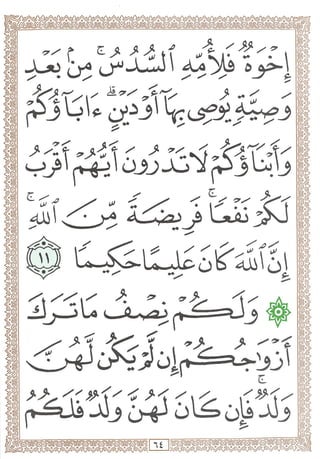 إِخْوَةٌ فَلِأُمِّهِ ٱلسُّدُسُ ۚ مِنۢ بَعْدِ
وَصِيَّةٍ يُوصِى بِهَآ أَوْ دَيْنٍ ۗ ءَابَآؤُكُمْ
وَأَبْنَآؤُكُمْ لَا تَدْرُونَ أَيُّهُمْ أَقْرَبُ
لَكُمْ نَفْعًا ۚ فَرِيضَةً مِّنَ ٱللَّهِ ۗ
إِنَّ ٱللَّهَ كَانَ عَلِيمًا حَكِيمًا ١١
۞ وَلَكُمْ نِصْفُ مَا تَرَكَ
أَزْوَٰجُكُمْ إِن لَّمْ يَكُن لَّهُنَّ
وَلَدٌ ۚ فَإِن كَانَ لَهُنَّ وَلَدٌ فَلَكُمُ
٦٤